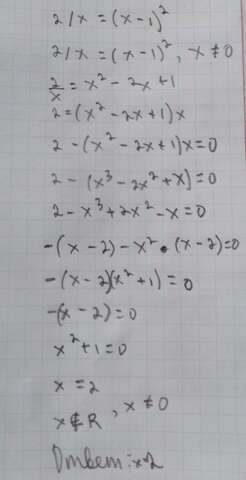 2/x = (x-1)²
2/x = (x-1)², x ≠ 0
2/x = x² - 2x + 1
2 = (x² - 2x + 1)x
2 - (x² - 2x + 1)x = 0
2 - (x³ - 2x² + x) = 0
2 - x³ + 2x² - x = 0
-(x - 2) - x² • (x - 2) = 0
-(x - 2)(x² + 1) = 0
-(x - 2) = 0
x² + 1 = 0
x = 2
x ∉ R , x ≠ 0
Ответ: x=2